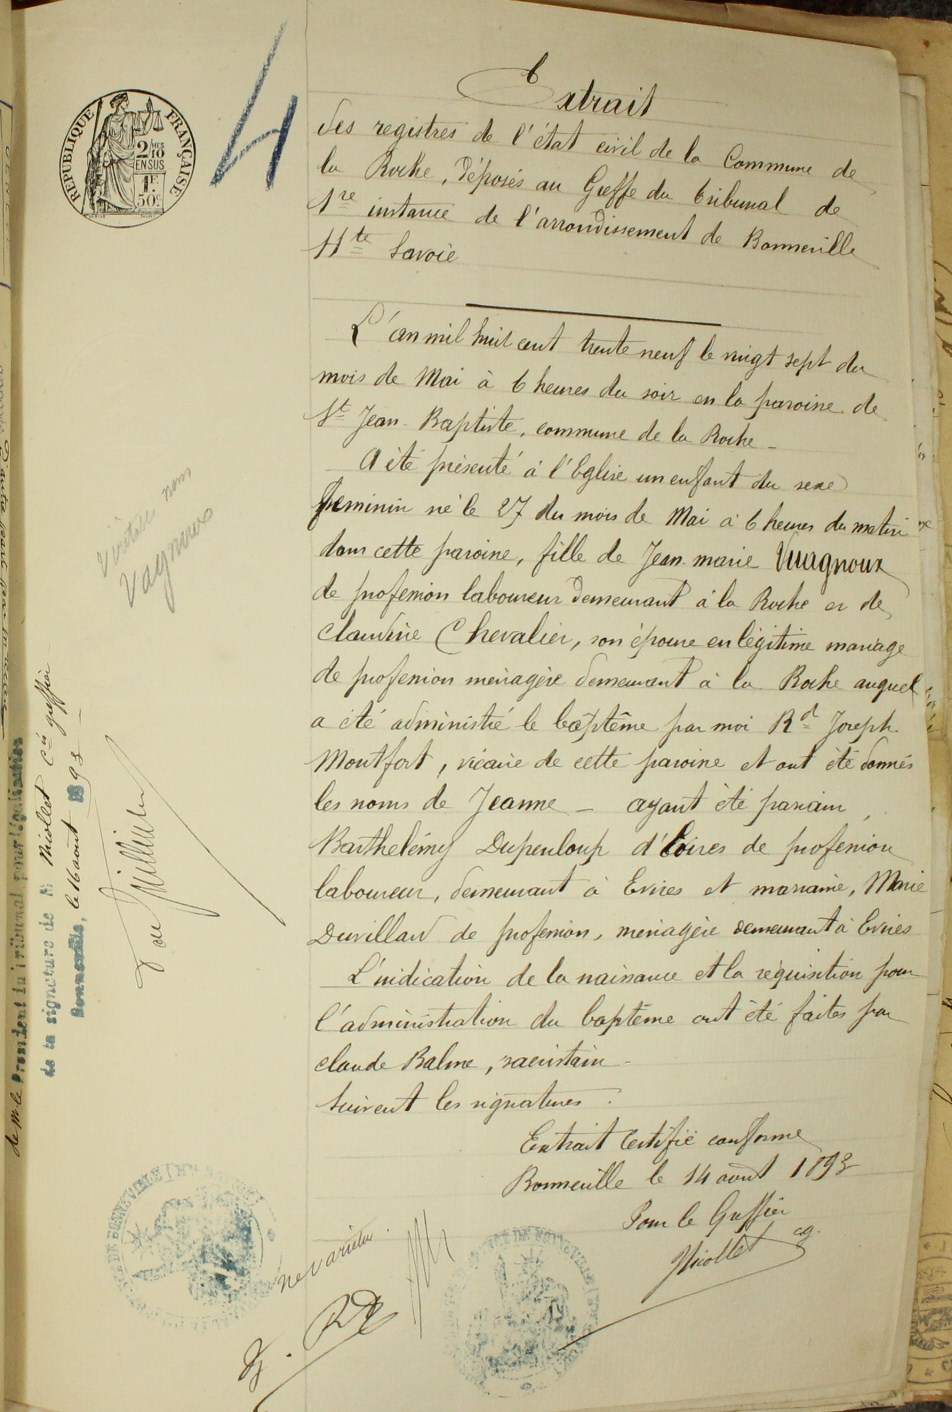 RÉPUBLIQUE FRANÇAISE
2/10 EN SUS
1F 50c
4
Extrait
des registres de l'état civil de la Commune de
la Roche, déposés au Greffe du tribunal de
1re instance de l'arrondissement de Bonneville
Hte Savoie
L'an mil huit cent trente neuf le vingt sept du
mois de Mai à 6 heures du soir en la paroisse de
St Jean-Baptiste, commune de la Roche -
A été présenté à l'Eglise un enfant du sexe
féminin né le 27 du mois de Mai à 6 heures du matin
dans cette paroisse, fille de Jean-marie Vuagnoux
de profession laboureur demeurant à la Roche et de
Claudine Chevalier, son épouse en légitime mariage
de profession ménagère demeurant à la Roche auquel
a été administré le baptême par moi Rd Joseph
Montfort, vicaire de cette paroisse et ont été donnés
les noms de Jeanne - ayant été parrain
Barthelémy Dupenloup d'Evires de profession
laboureur, demeurant à Evires et marraine, Marie
Duvillard de profession, ménagère demeurant à Evires
L'indication de la naissance et la réquisition pour
l'administration du baptême ont été faites par
claude Balme, sacristain -
Suivent les signatures.
Extrait Certifié conforme
Bonneville le 14 août 1893
Pour le Greffier
Nicollet cg
Vagnoux
de M. le Président du Tribunal pour légalisation
de la signature de M. Nicollet cis greffier
Bonneville, le 16 août 1893
ne varietur